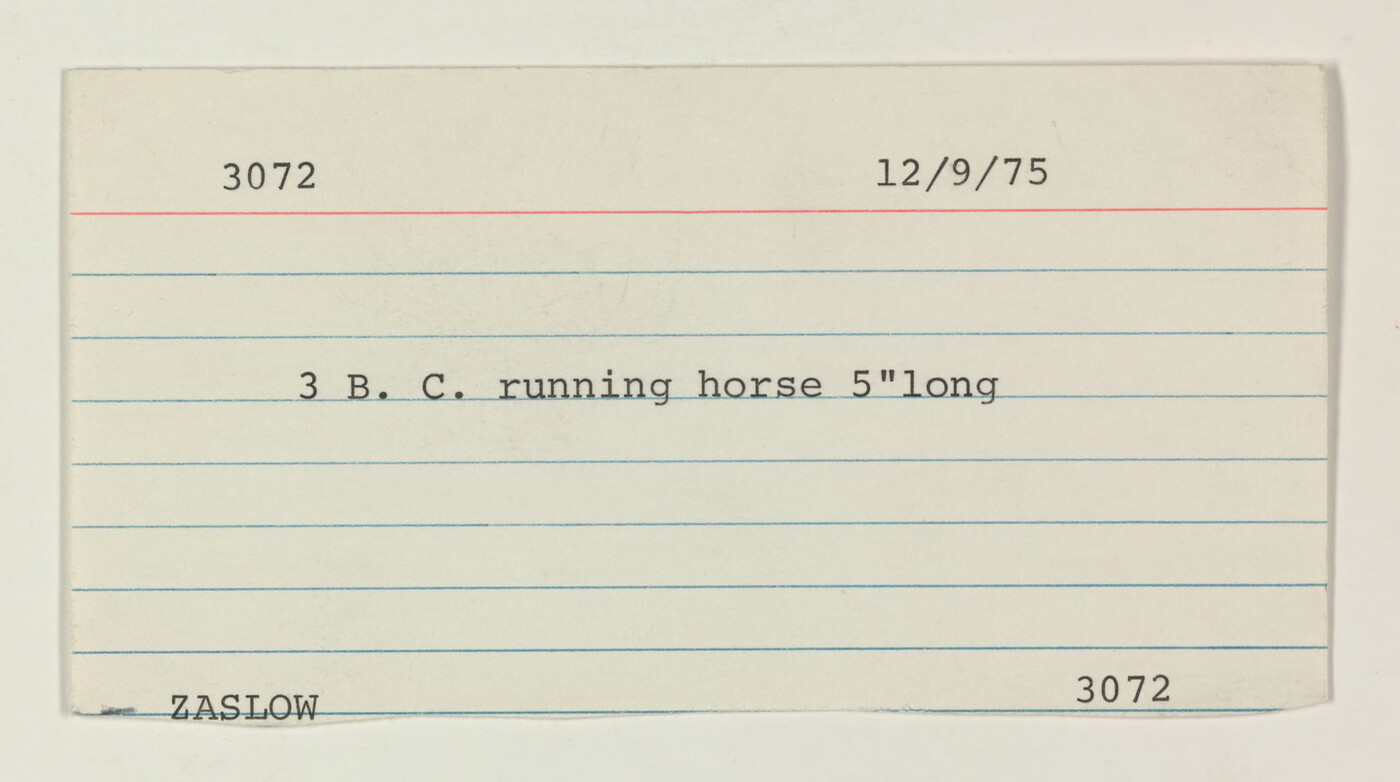 3072 12/9/75
3 B. C. running horse 5"long
ZASLOW 3072